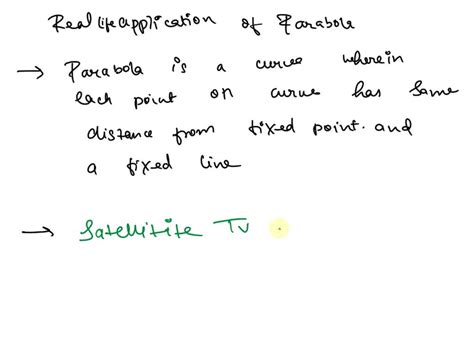 Real life application of Parabola
→ Parabola is a curve wherein
each point on curve has same
distance from fixed point. and
a fixed line
→ Satellitite TV